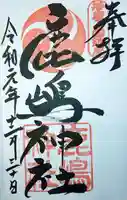 奉拝
鹿嶋神社
令和元年十一月二十日